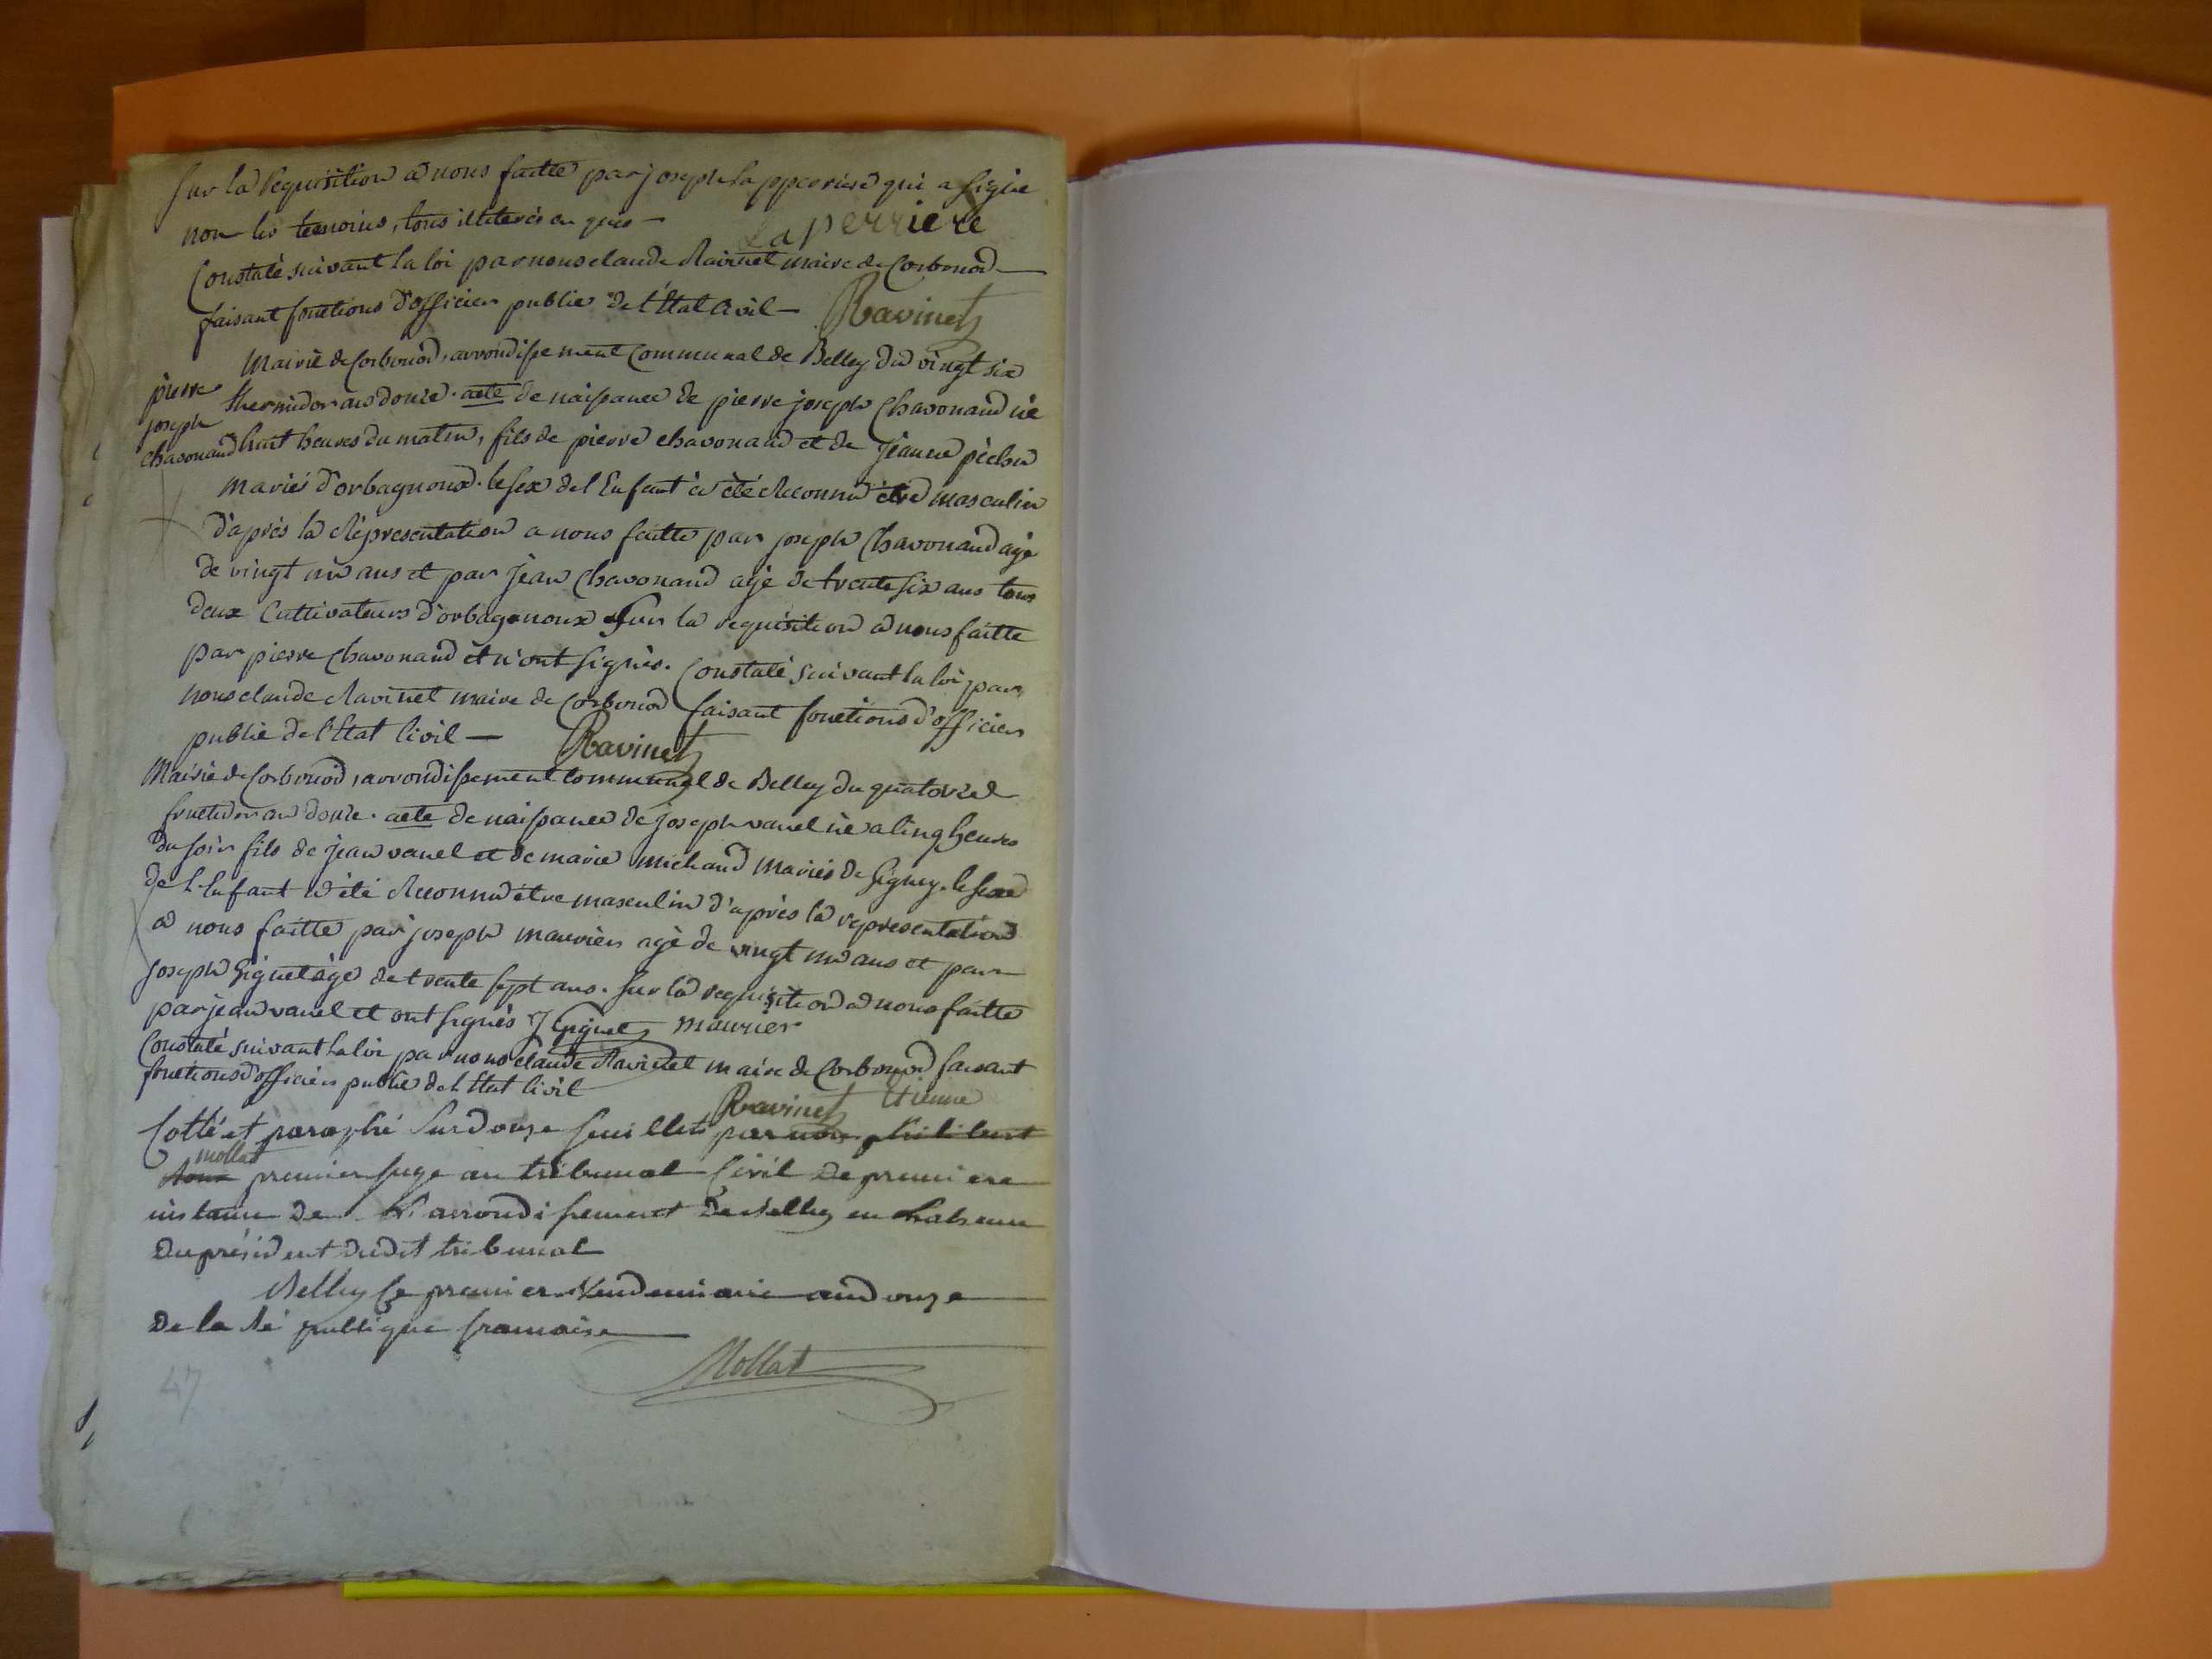 Sur la requisition a nous faitte par joseph lapperiere qui a signe
non les temoins, tous illiterés en quis —
Laperriere
Constaté suivant la loi par nous claude Ravinet maire de Corbonod —
faisant fonctions d'officier public de l'Etat Civil — Ravinet
Mairie de Corbonod, arrondissement Communal de Belley du vingt six
pierre
joseph
chavonand
thermidor an douze. acte de naissance de pierre joseph Chavonand né
huit heures du matin, fils de pierre chavonand et de Jeanne péchu
mariés d'orbagnoux. le sex de l'Enfant à été Reconnu être masculin
d'après la Représentation a nous faitte par joseph Chavonand agé
de vingt un ans et par jean Chavonand agé de trente six ans tous
deux Cultivateurs d'orbagnoux Sur la requisition a nous faitte
par pierre Chavonand et n'ont signés. Constaté suivant la loi par
nous claude Ravinet maire de Corbonod faisant fonctions d'officier
public de l'Etat Civil — Ravinet
Mairie de Corbonod, arrondissement Communal de Belley du quatorze
fructidor an douze. acte de naissance de joseph vanel né a cinq heures
du soir fils de jean vanel et de marie michaud mariés de Gigney. le sexe
de l'Enfant a été Reconnu etre masculin d'après la representation
a nous faitte par joseph maurier agé de vingt un ans et par
joseph Giguet agé de trente sept ans. sur la requisition a nous faitte
par jean vanel et ont signés J Giguet maurier
Constaté suivant la loi par nous claude Ravinet maire de Corbonod faisant
fonctions d'officier public de l'Etat Civil
Ravinet Etienne
Cotté et paraphé Sur douze feuillets par nous philibert
mollat
premier juge au tribunal Civil de premiere
instance de L'arrondissement de Belley en L'absence
du président dudit tribunal
Belley le premier Vendemiaire an douze
de la République francaise
Mollat
47